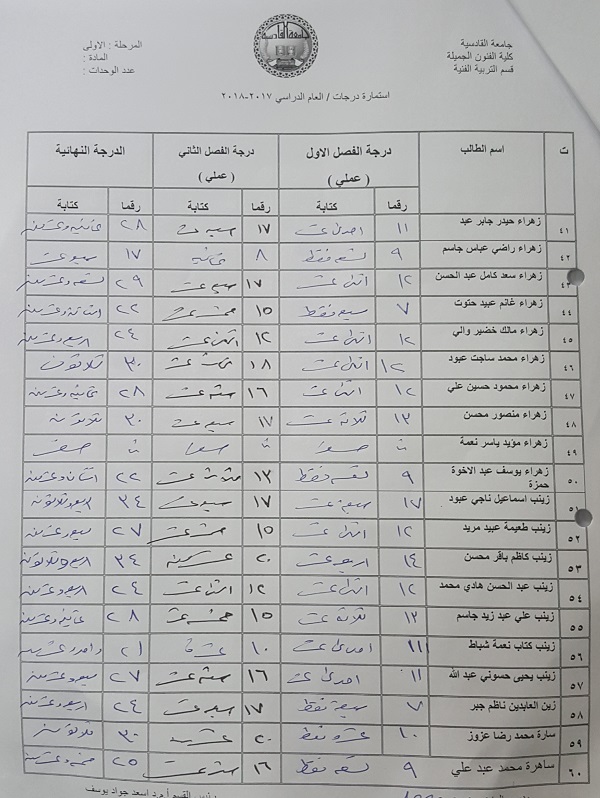 جامعة القادسية
كلية الفنون الجميلة
قسم التربية الفنية
المرحلة : الاولى
المادة :
عدد الوحدات :
استمارة درجات / العام الدراسي ٢٠١٧-٢٠١٨
ت اسم الطالب درجة الفصل الاول ( عملي ) درجة الفصل الثاني ( عملي ) الدرجة النهائية
رقما كتابة رقما كتابة رقما كتابة
٤١ زهراء حيدر جابر عبد ١١ احدى عشر ١٧ سبعة عشر ٢٨ ثمانية وعشرين
٤٢ زهراء راضي عباس جاسم ٩ تسعة فقط ٨ ثمانية ١٧ سبعة عشر
٤٣ زهراء سعد كامل عبد الحسن ١٢ اثنى عشر ١٧ سبعة عشر ٢٩ تسعة وعشرين
٤٤ زهراء غانم عبيد حتوت ٧ سبعة فقط ١٥ خمسة عشر ٢٢
٤٥ زهراء مالك خضير والي ١٢ اثنى عشر ١٢ اثنى عشر ٢٤ اربعة وعشرين
٤٦ زهراء محمد ساجت عبود ١٢ اثنى عشر ١٨ ٣٠ ثلاثون
٤٧ زهراء محمود حسين علي ١٢ اثنى عشر ١٦ ستة عشر ٢٨ ثمانية وعشرين
٤٨ زهراء منصور محسن ١٣ ثلاثة عشر ١٧ سبعة عشر ٣٠ ثلاثون
٤٩ زهراء مؤيد ياسر نعمة
٥٠ زهراء يوسف عبد الاخوة حمزة ٩ تسعة فقط ١٣ ٢٢
٥١ زينب اسماعيل ناجي عبود ١٧ سبعة عشر ١٧ سبعة عشر ٣٤ اربعة وثلاثون
٥٢ زينب طعيمة عبيد مريد ١٢ اثنى عشر ١٥ خمسة عشر ٢٧ سبعة وعشرين
٥٣ زينب كاظم باقر محسن ١٤ اربعة عشر ٢٠ عشرين ٣٤ اربعة وثلاثون
٥٤ زينب عبد الحسن هادي محمد ١٢ اثنى عشر ١٢ اثنى عشر ٢٤ اربعة وعشرين
٥٥ زينب علي عبد زيد جاسم ١٣ ثلاثة عشر ١٥ خمسة عشر ٢٨ ثمانية وعشرين
٥٦ زينب كتاب نعمة شباط ١١ احدى عشر ١٠ ٢١ واحد وعشرين
٥٧ زينب يحيى حسوني عبد الله ١١ احدى عشر ١٦ ستة عشر ٢٧ سبعة وعشرين
٥٨ زين العابدين ناظم جبر ٧ سبعة فقط ١٧ سبعة عشر ٢٤ اربعة وعشرين
٥٩ سارة محمد رضا عزوز ١٠ عشرة فقط ٢٠ عشرين ٣٠ ثلاثون
٦٠ ساهرة محمد عبد علي ٩ تسعة فقط ١٦ ستة عشر ٢٥ خمسة وعشرين
رئيس القسم أ.م.د اسعد جواد يوسف